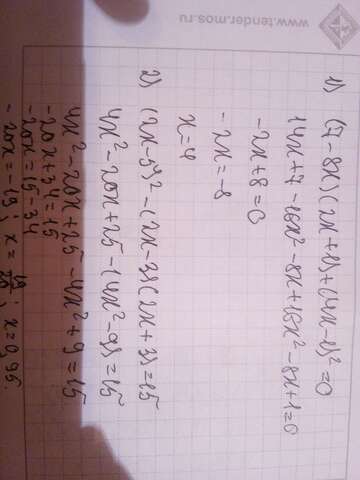 www.tender.mos.ru
1) (7-8x)(2x+1)+(4x-1)²=0
14x+7-16x²-8x+16x²-8x+1=0
-2x+8=0
-2x=-8
x=4
2) (2x-5)²-(2x-3)(2x+3)=15
4x²-20x+25-(4x²-9)=15
4x²-20x+25-4x²+9=15
-20x+34=15
-20x=15-34
-20x=-19; x=19/20; x=0,95.